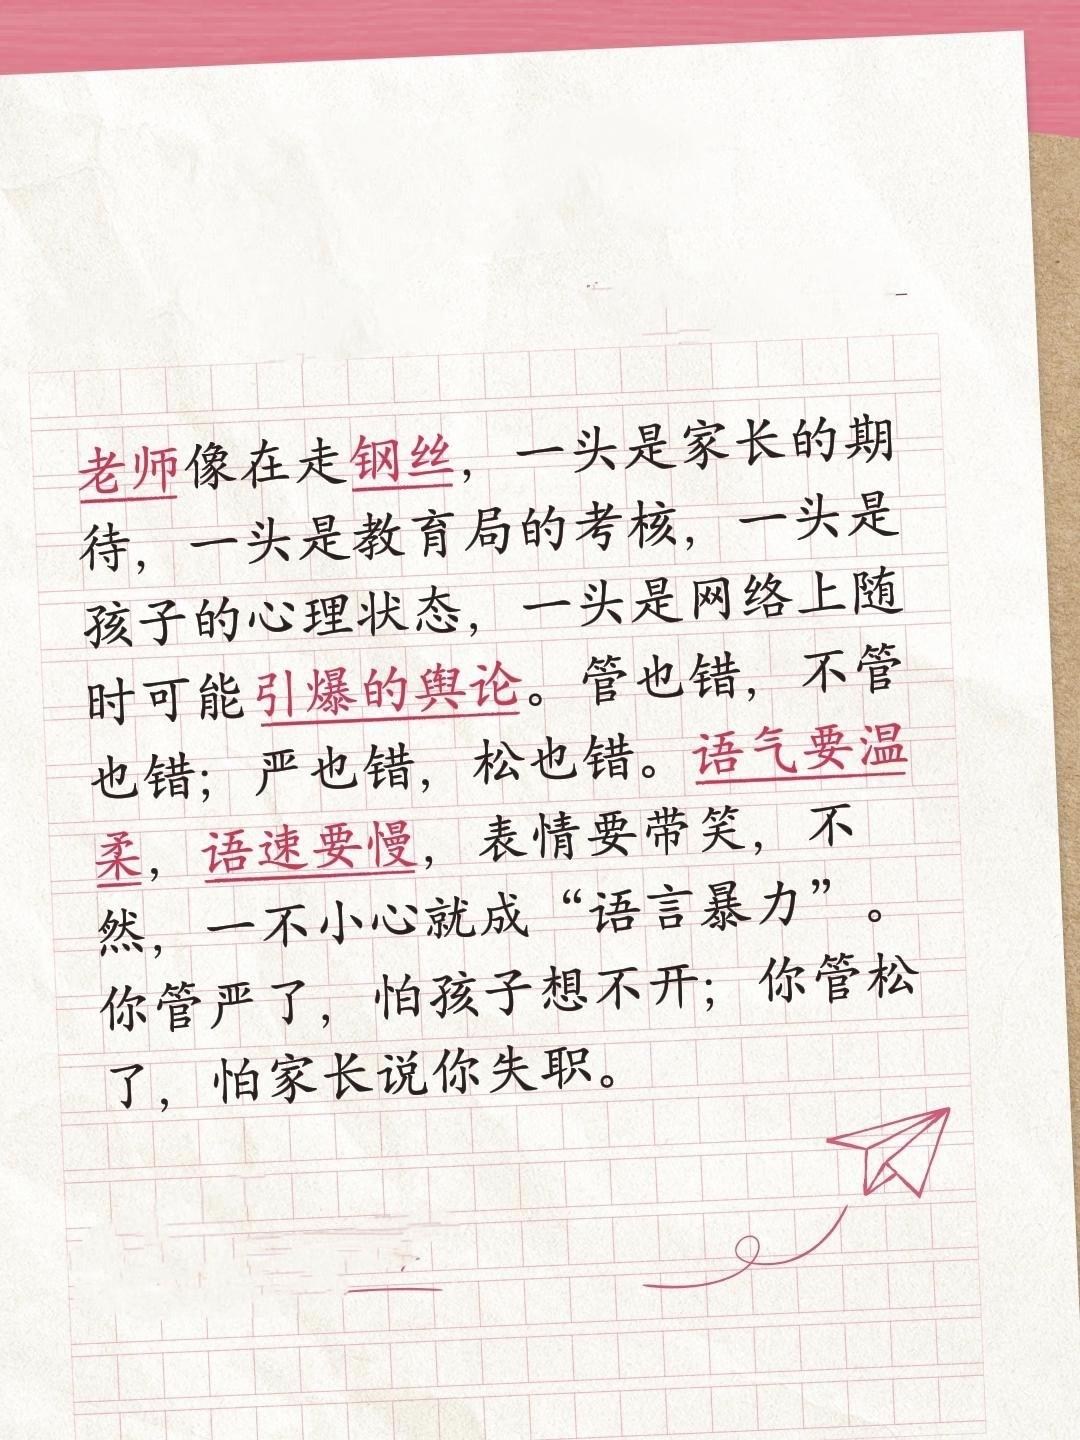 老师像在走钢丝，一头是家长的期
待，一头是教育局的考核，一头是
孩子的心理状态，一头是网络上随
时可能引爆的舆论。管也错，不管
也错；严也错，松也错。语气要温
柔，语速要慢，表情要带笑，不
然，一不小心就成“语言暴力”。
你管严了，怕孩子想不开；你管松
了，怕家长说你失职。